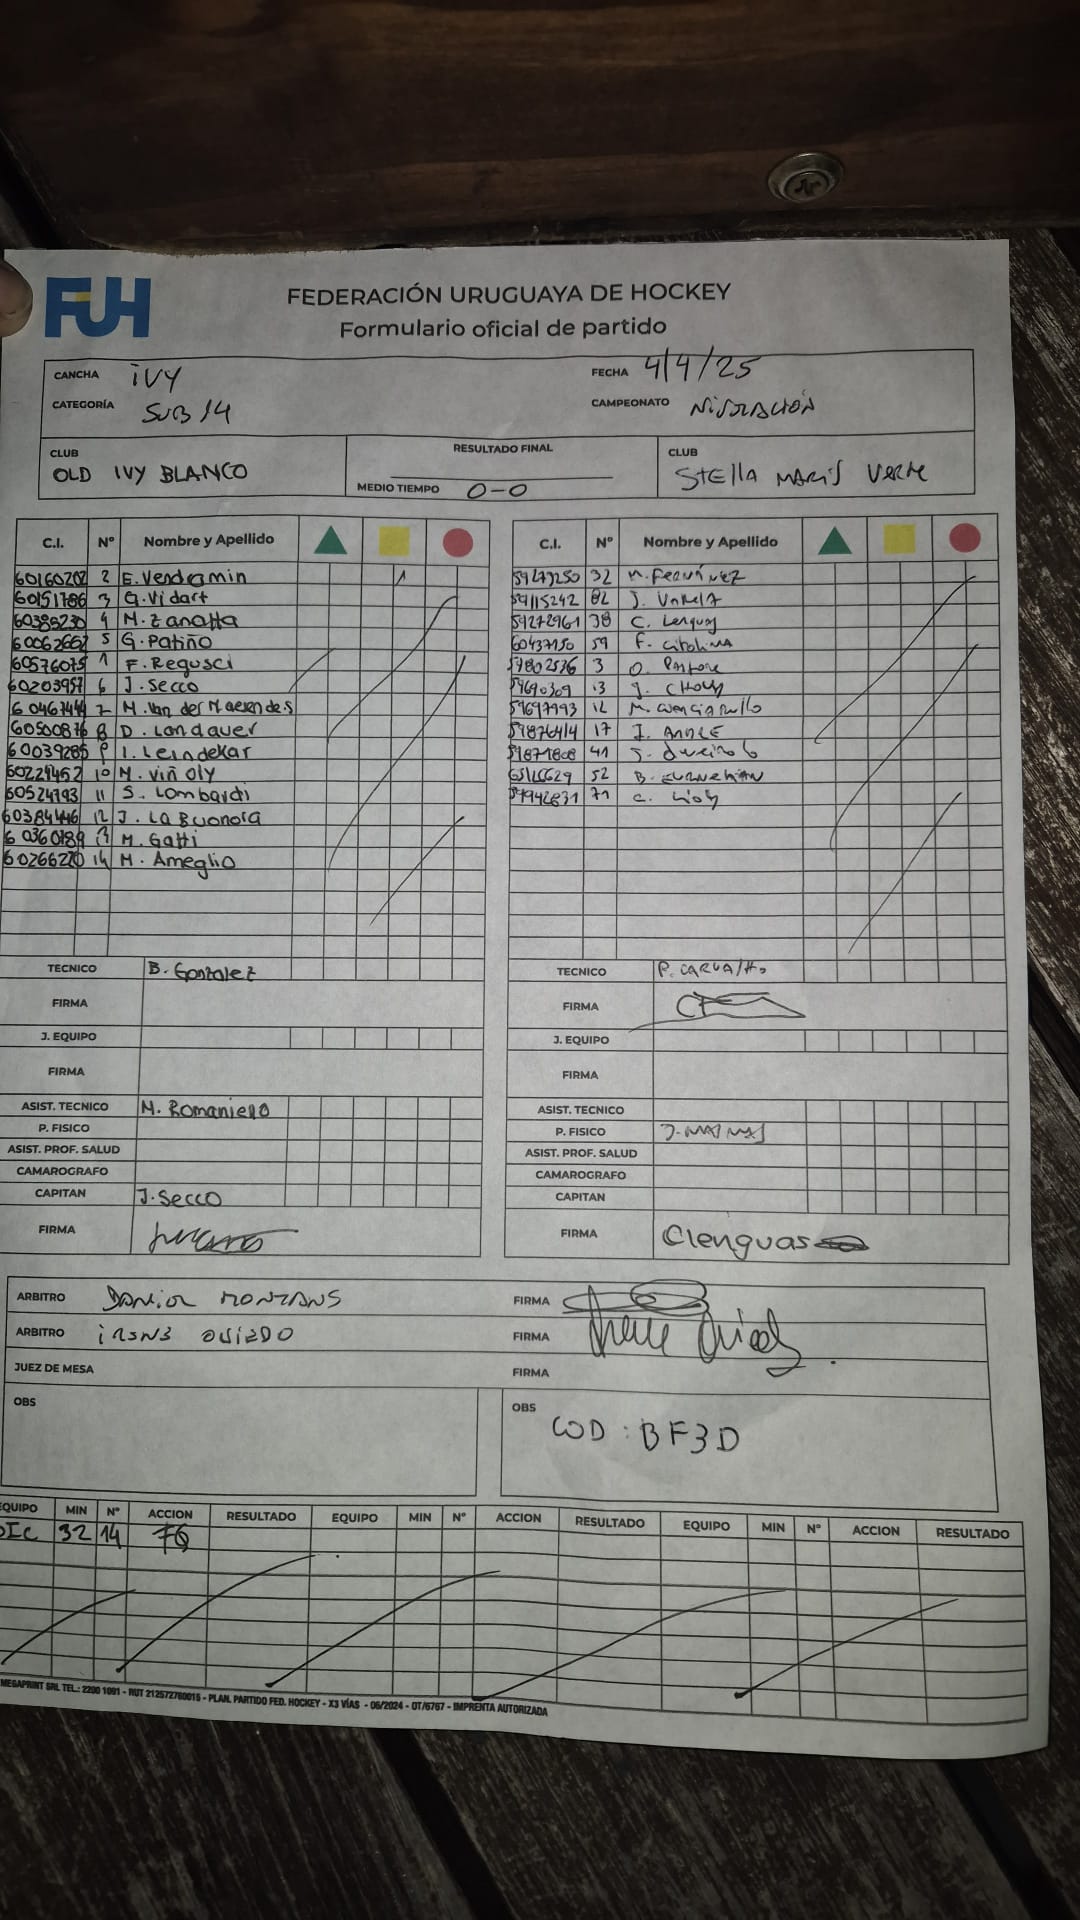 FUH
FEDERACIÓN URUGUAYA DE HOCKEY
Formulario oficial de partido
CANCHA IVY FECHA 4/4/25
CATEGORÍA SUB 14 CAMPEONATO
CLUB RESULTADO FINAL CLUB
OLD IVY BLANCO STELLA MARIS VERDE
MEDIO TIEMPO 0-0
C.I. Nº Nombre y Apellido
60160202 2 E. Vendramin
60151786 3 G. Vidart
60385230 4 M. Zanatta
60062662 5 G. Patiño
60576075 1 F. Regusci
60203957 6 J. Secco
7 M. Van der Maesendes
60500876 8 D. Landauer
60039285 9 I. Leindekar
60229452 10 M. Viñoly
60524793 11 S. Lombardi
60384446 12 J. La Buonora
60360789 13 M. Gatti
60266220 14 M. Ameglio
TECNICO B. Gonzalez
FIRMA
J. EQUIPO
FIRMA
ASIST. TECNICO M. Romaniero
P. FISICO
ASIST. PROF. SALUD
CAMAROGRAFO
CAPITAN J. Secco
FIRMA
C.I. Nº Nombre y Apellido
59279250 32 M. FERNÁNDEZ
59115242 82 J. VARELA
59272961 38 C. Lenguas
60437150 59 F.
57802536 3 O. Pastore
59690309 13 J.
59697993 12 M.
59876414 17 J.
59871808 41 J.
52 B.
59942831 71 C.
TECNICO P. CARVALHO
FIRMA
J. EQUIPO
FIRMA
ASIST. TECNICO
P. FISICO
ASIST. PROF. SALUD
CAMAROGRAFO
CAPITAN
FIRMA Clenguas
ARBITRO DANIEL FIRMA
ARBITRO IRENE OVIEDO FIRMA Irene Oviedo
JUEZ DE MESA FIRMA
OBS
OBS COD: BF3D
EQUIPO MIN Nº ACCION RESULTADO EQUIPO MIN Nº ACCION RESULTADO EQUIPO MIN Nº ACCION RESULTADO
OIC 32 14
MEGAPRINT SRL TEL.: 2200 1091 - RUT 212572760015 - PLAN. PARTIDO FED. HOCKEY - X3 VÍAS - 06/2024 - OT/6767 - IMPRENTA AUTORIZADA